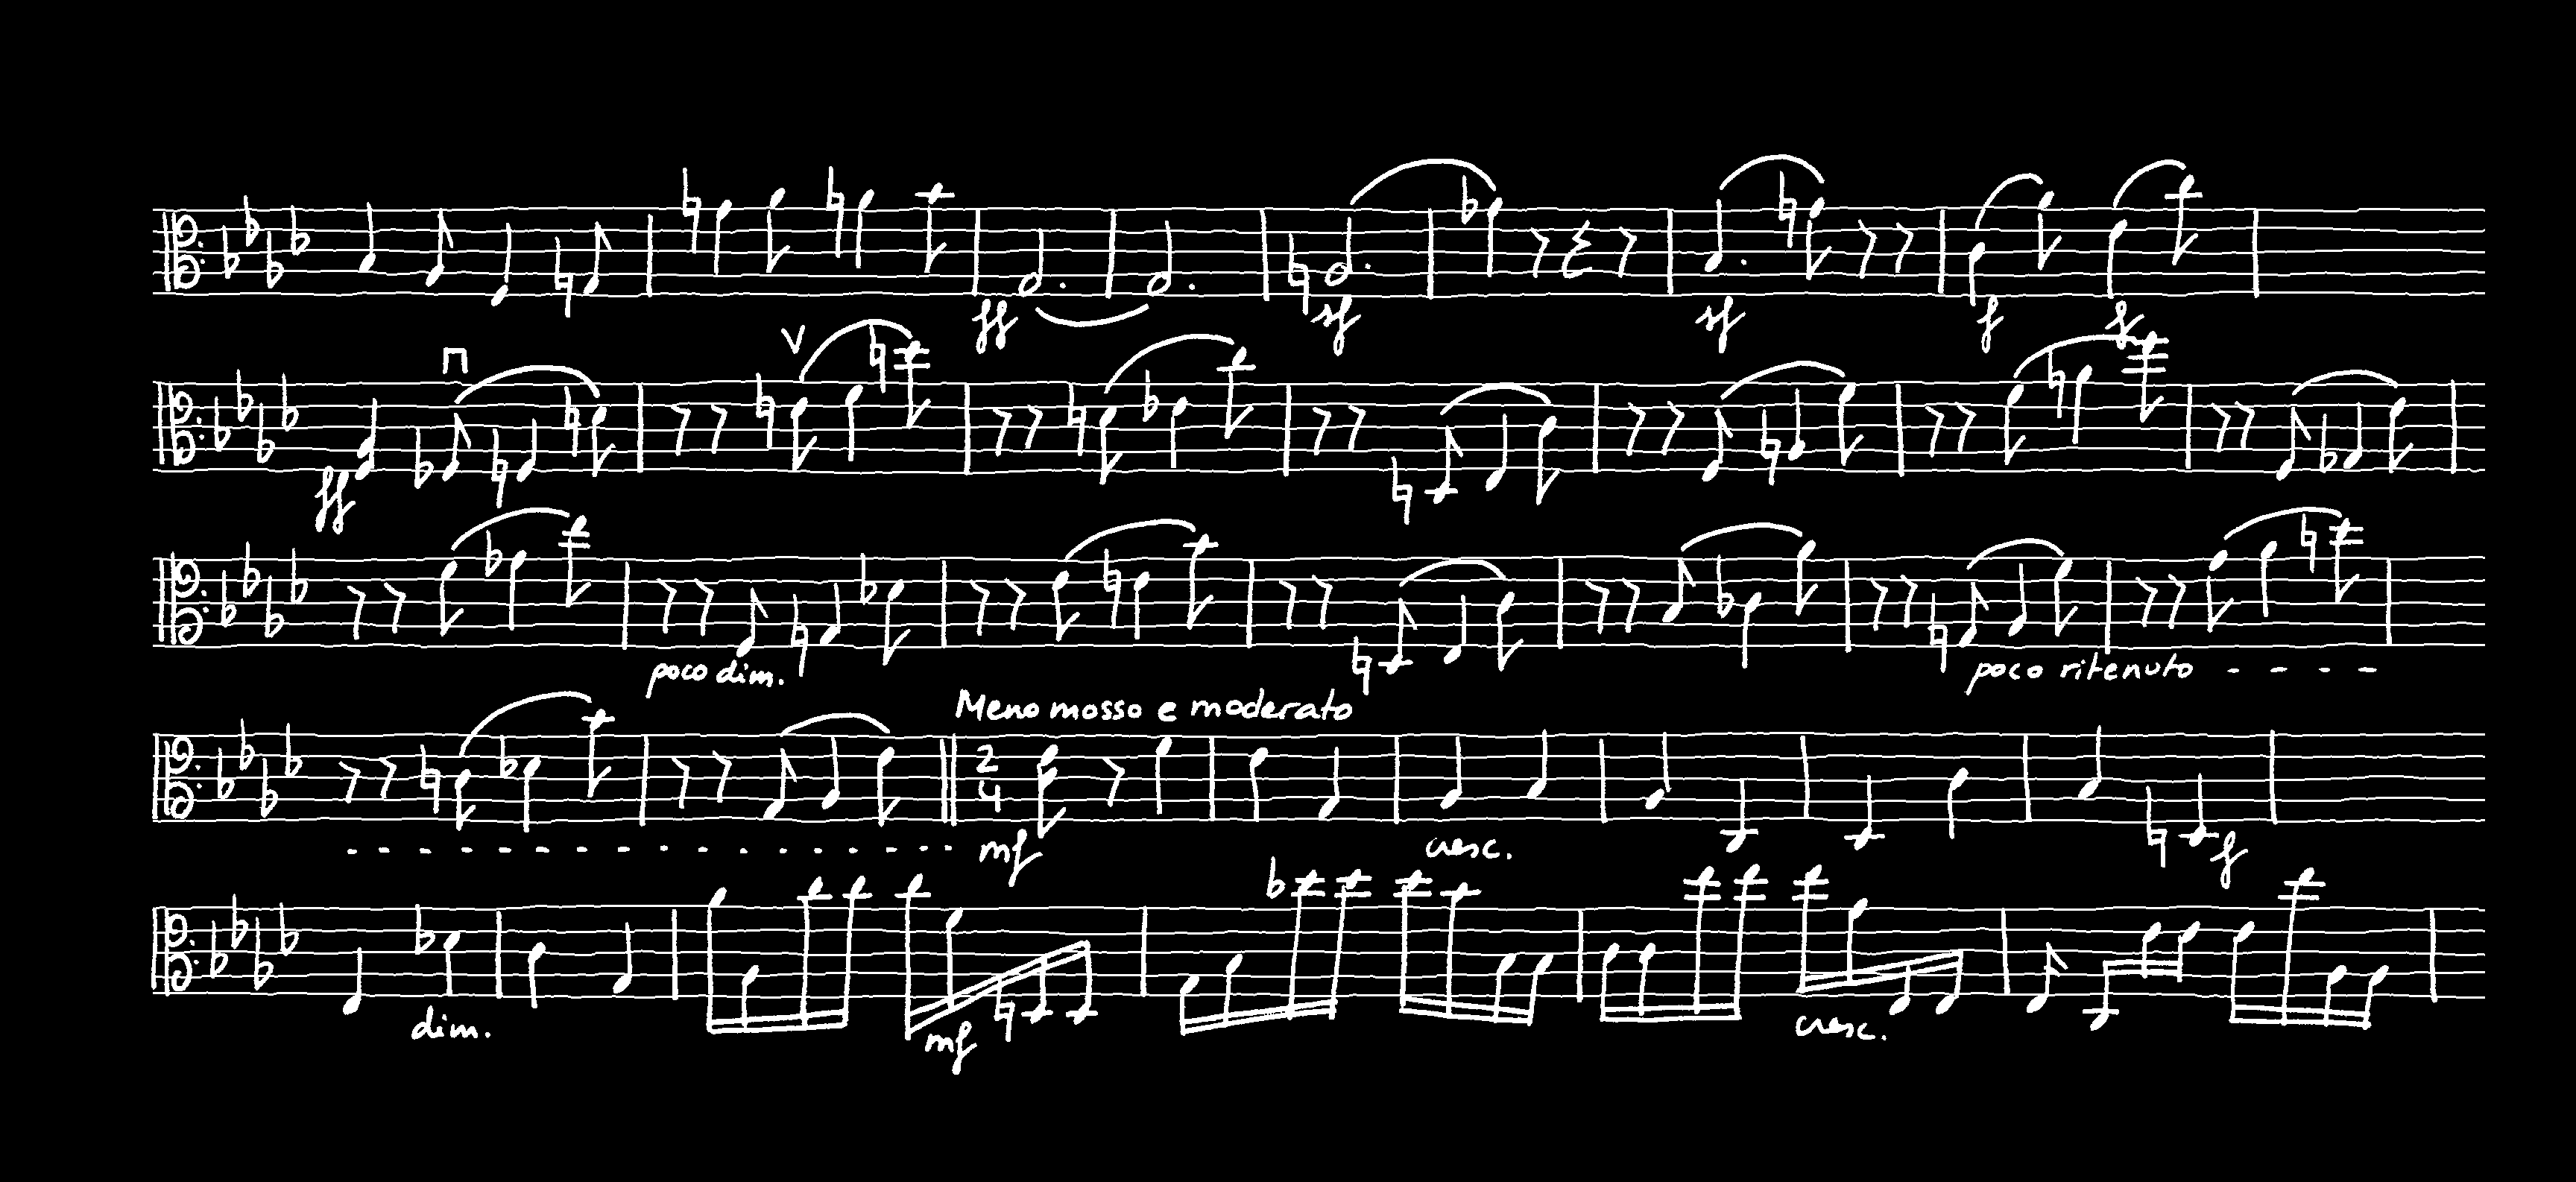 ff sf sf f f
ff
poco dim. poco ritenuto - - - -
Meno mosso e moderato
2/4
mf cresc. f
dim. mf cresc.